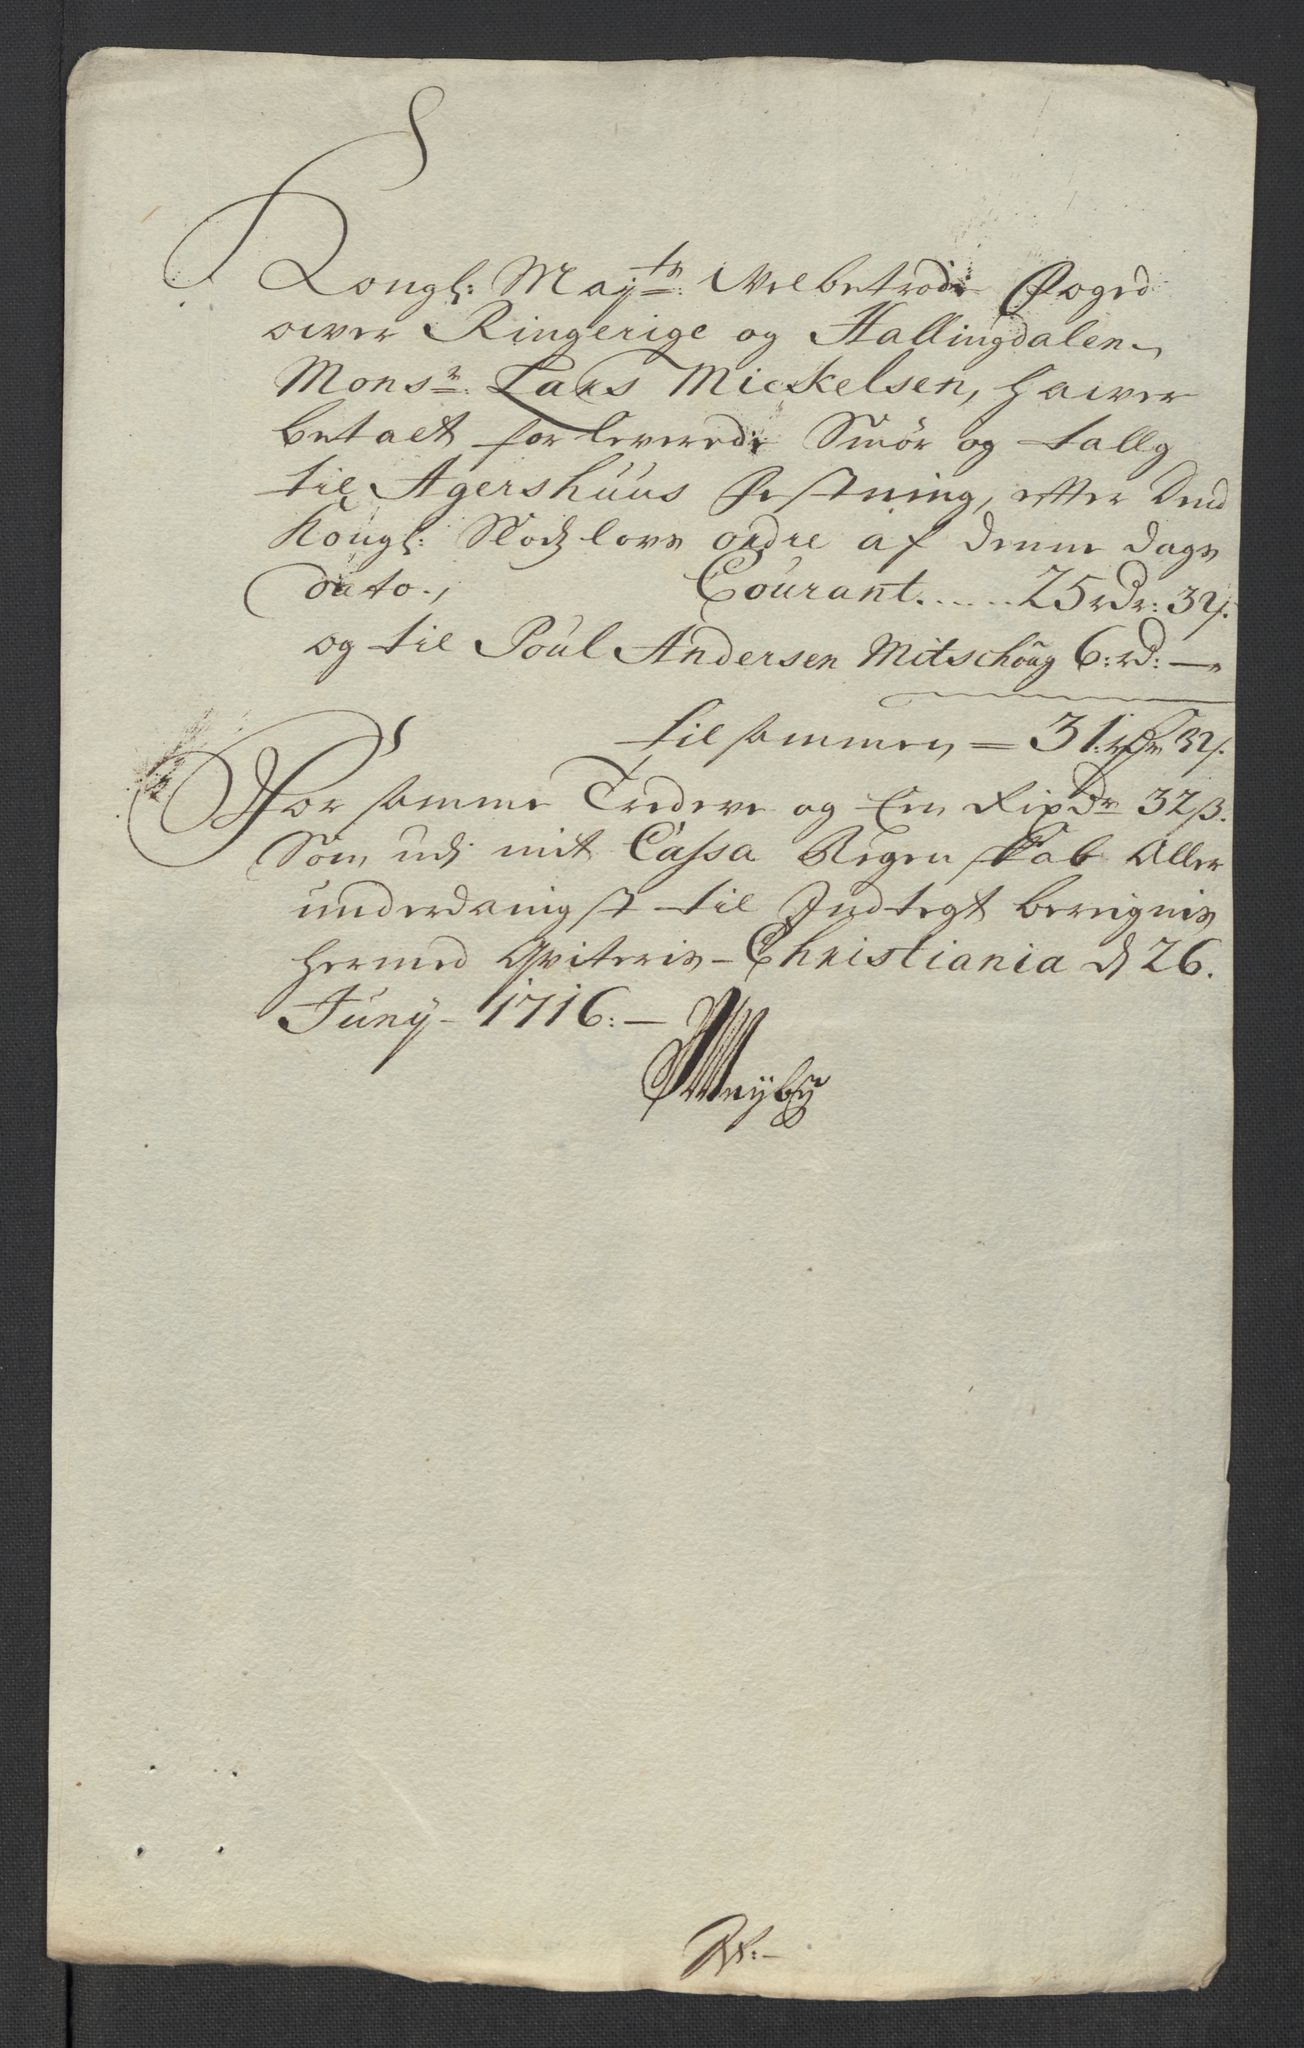 Kongl: Mayts: Velbetrode Foged
ower Ringerige og Hallingdalen
Monsr: Lars Mickelsen, hawer
betalt for leverede Smör og tallg
til Agershuus Festning, efter Dend
Kongl: Slotzlovs ordre af denne dags
dato., Courant......25 rdr: 32ß.
og til Poul Andersen Mitschoug 6: rd: —
til sammen = 31: rdr 32ß.
For samme Tredeve og Een Rixdr 32ß.
Som udj mit Cassa Regenskab Aller
underdanigst til Indtegt bereignis
hermed Qviteris – Christiania d 26.
Juny – 1716: —